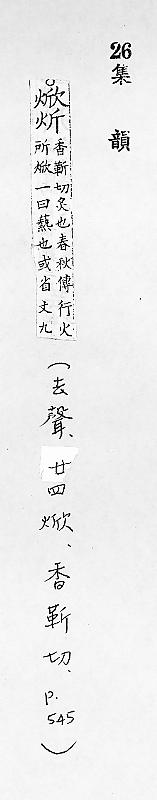 26
集韻
焮炘 香靳切炙也春秋傳行火
所焮一曰爇也或省文九
(去聲、廿四焮、香靳切、p.545)